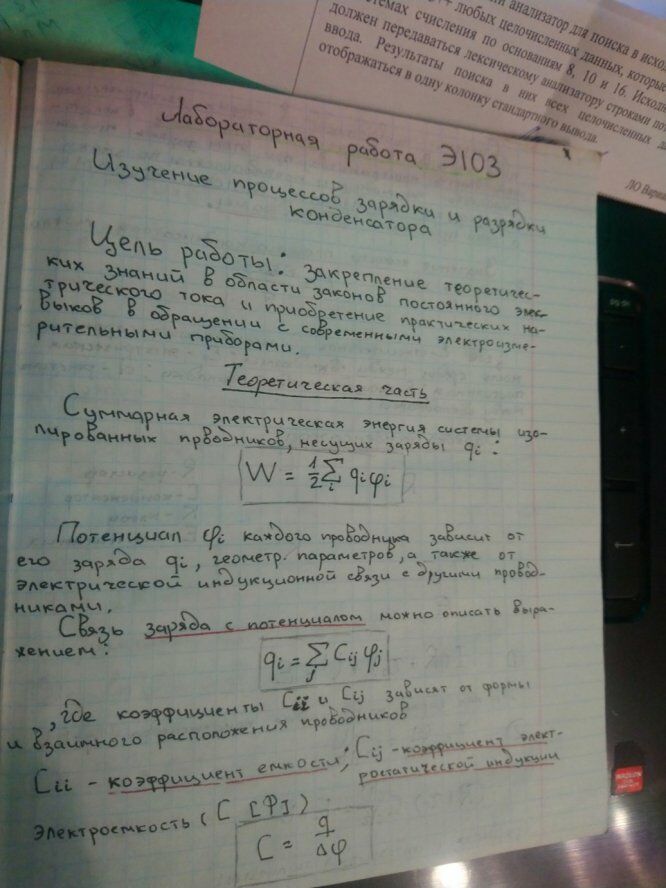 анализатор для поиска в исхо
любых целочисленных данных, которые
системах счисления по основаниям 8, 10 и 16. Исход
должен передаваться лексическому анализатору строками по
ввода. Результаты поиска в них всех целочисленных да
отображаться в одну колонку стандартного вывода.
ЛО Вариа
Лабораторная работа Э103
Изучение процессов зарядки и разрядки
конденсатора
Цель работы: Закрепление теоретичес-
ких знаний в области законов постоянного элек-
трического тока и приобретение практических на-
выков в обращении с современными электроизме-
рительными приборами.
Теоретическая часть
Суммарная электрическая энергия системы изо-
лированных прводников, несущих заряды qi:
W = 1/2 ∑i qiφi
Потенциал φi каждого проводника зависит от
его заряда qi, геометр. параметров, а также от
электрической индукционной связи с другими провод-
никами.
Связь заряда с потенциалом можно описать выра-
жением:
qi = ∑j Cij φj
, где коэффициенты Cii и Cij зависят от формы
и взаимного расположения проводников
Cii - коэффициент емкости; Cij - коэффициент элект-
ростатической индукции
Электроемкость (C [Ф])
C = q/Δφ